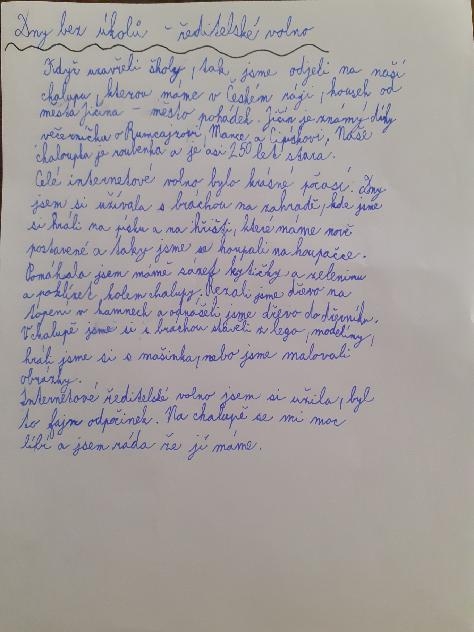 Dny bez úkolů - ředitelské volno
Když uzavřeli školy, tak jsme odjeli na naší
chalupu, kterou máme v Českém ráji, kousek od
města Jičína - město pohádek. Jičín je známý díky
večerníčku o Rumcajzovi, Mance a Cipískovi. Naše
chaloupka je roubenka a je asi 250 let stará.
Celé internetové volno bylo krásné počasí. Dny
jsem si užívala s bráchou na zahradě, kde jsme
si hráli na písku a na hřišti, které máme nově
postavené a taky jsme se houpali na houpačce.
Pomáhala jsem mámě sázet kytičky a zeleninu
a poklízet kolem chalupy. Řezali jsme dřevo na
topení v kamnech a odnášeli jsme dřevo do dřevníku.
V chalupě jsme si s bráchou stavěli z lega, modelíny,
hráli jsme si s mašinka, nebo jsme malovali
obrázky.
Internetové ředitelské volno jsem si užila, byl
to fajn odpočinek. Na chalupě se mi moc
líbí a jsem ráda že jí máme.